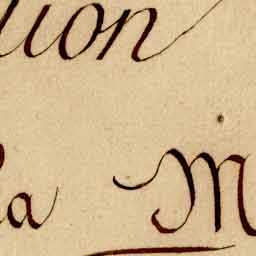 tion
la M